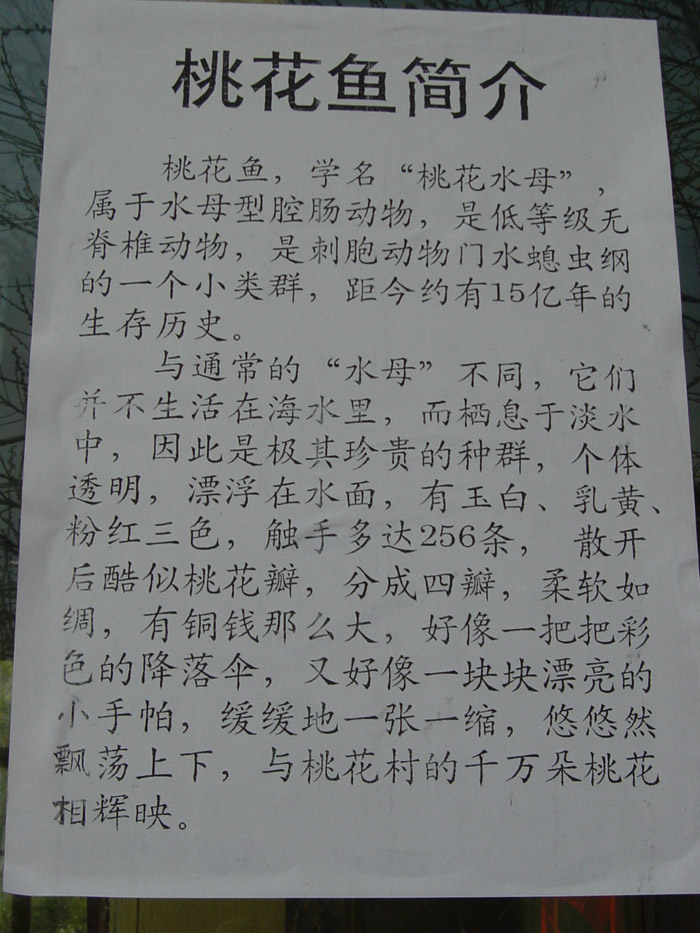 桃花鱼简介
桃花鱼，学名“桃花水母”，
属于水母型腔肠动物，是低等级无
脊椎动物，是刺胞动物门水螅虫纲
的一个小类群，距今约有15亿年的
生存历史。
与通常的“水母”不同，它们
并不生活在海水里，而栖息于淡水
中，因此是极其珍贵的种群，个体
透明，漂浮在水面，有玉白、乳黄、
粉红三色，触手多达256条， 散开
后酷似桃花瓣，分成四瓣，柔软如
绸，有铜钱那么大，好像一把把彩
色的降落伞，又好像一块块漂亮的
小手帕，缓缓地一张一缩，悠悠然
飘荡上下，与桃花村的千万朵桃花
相辉映。